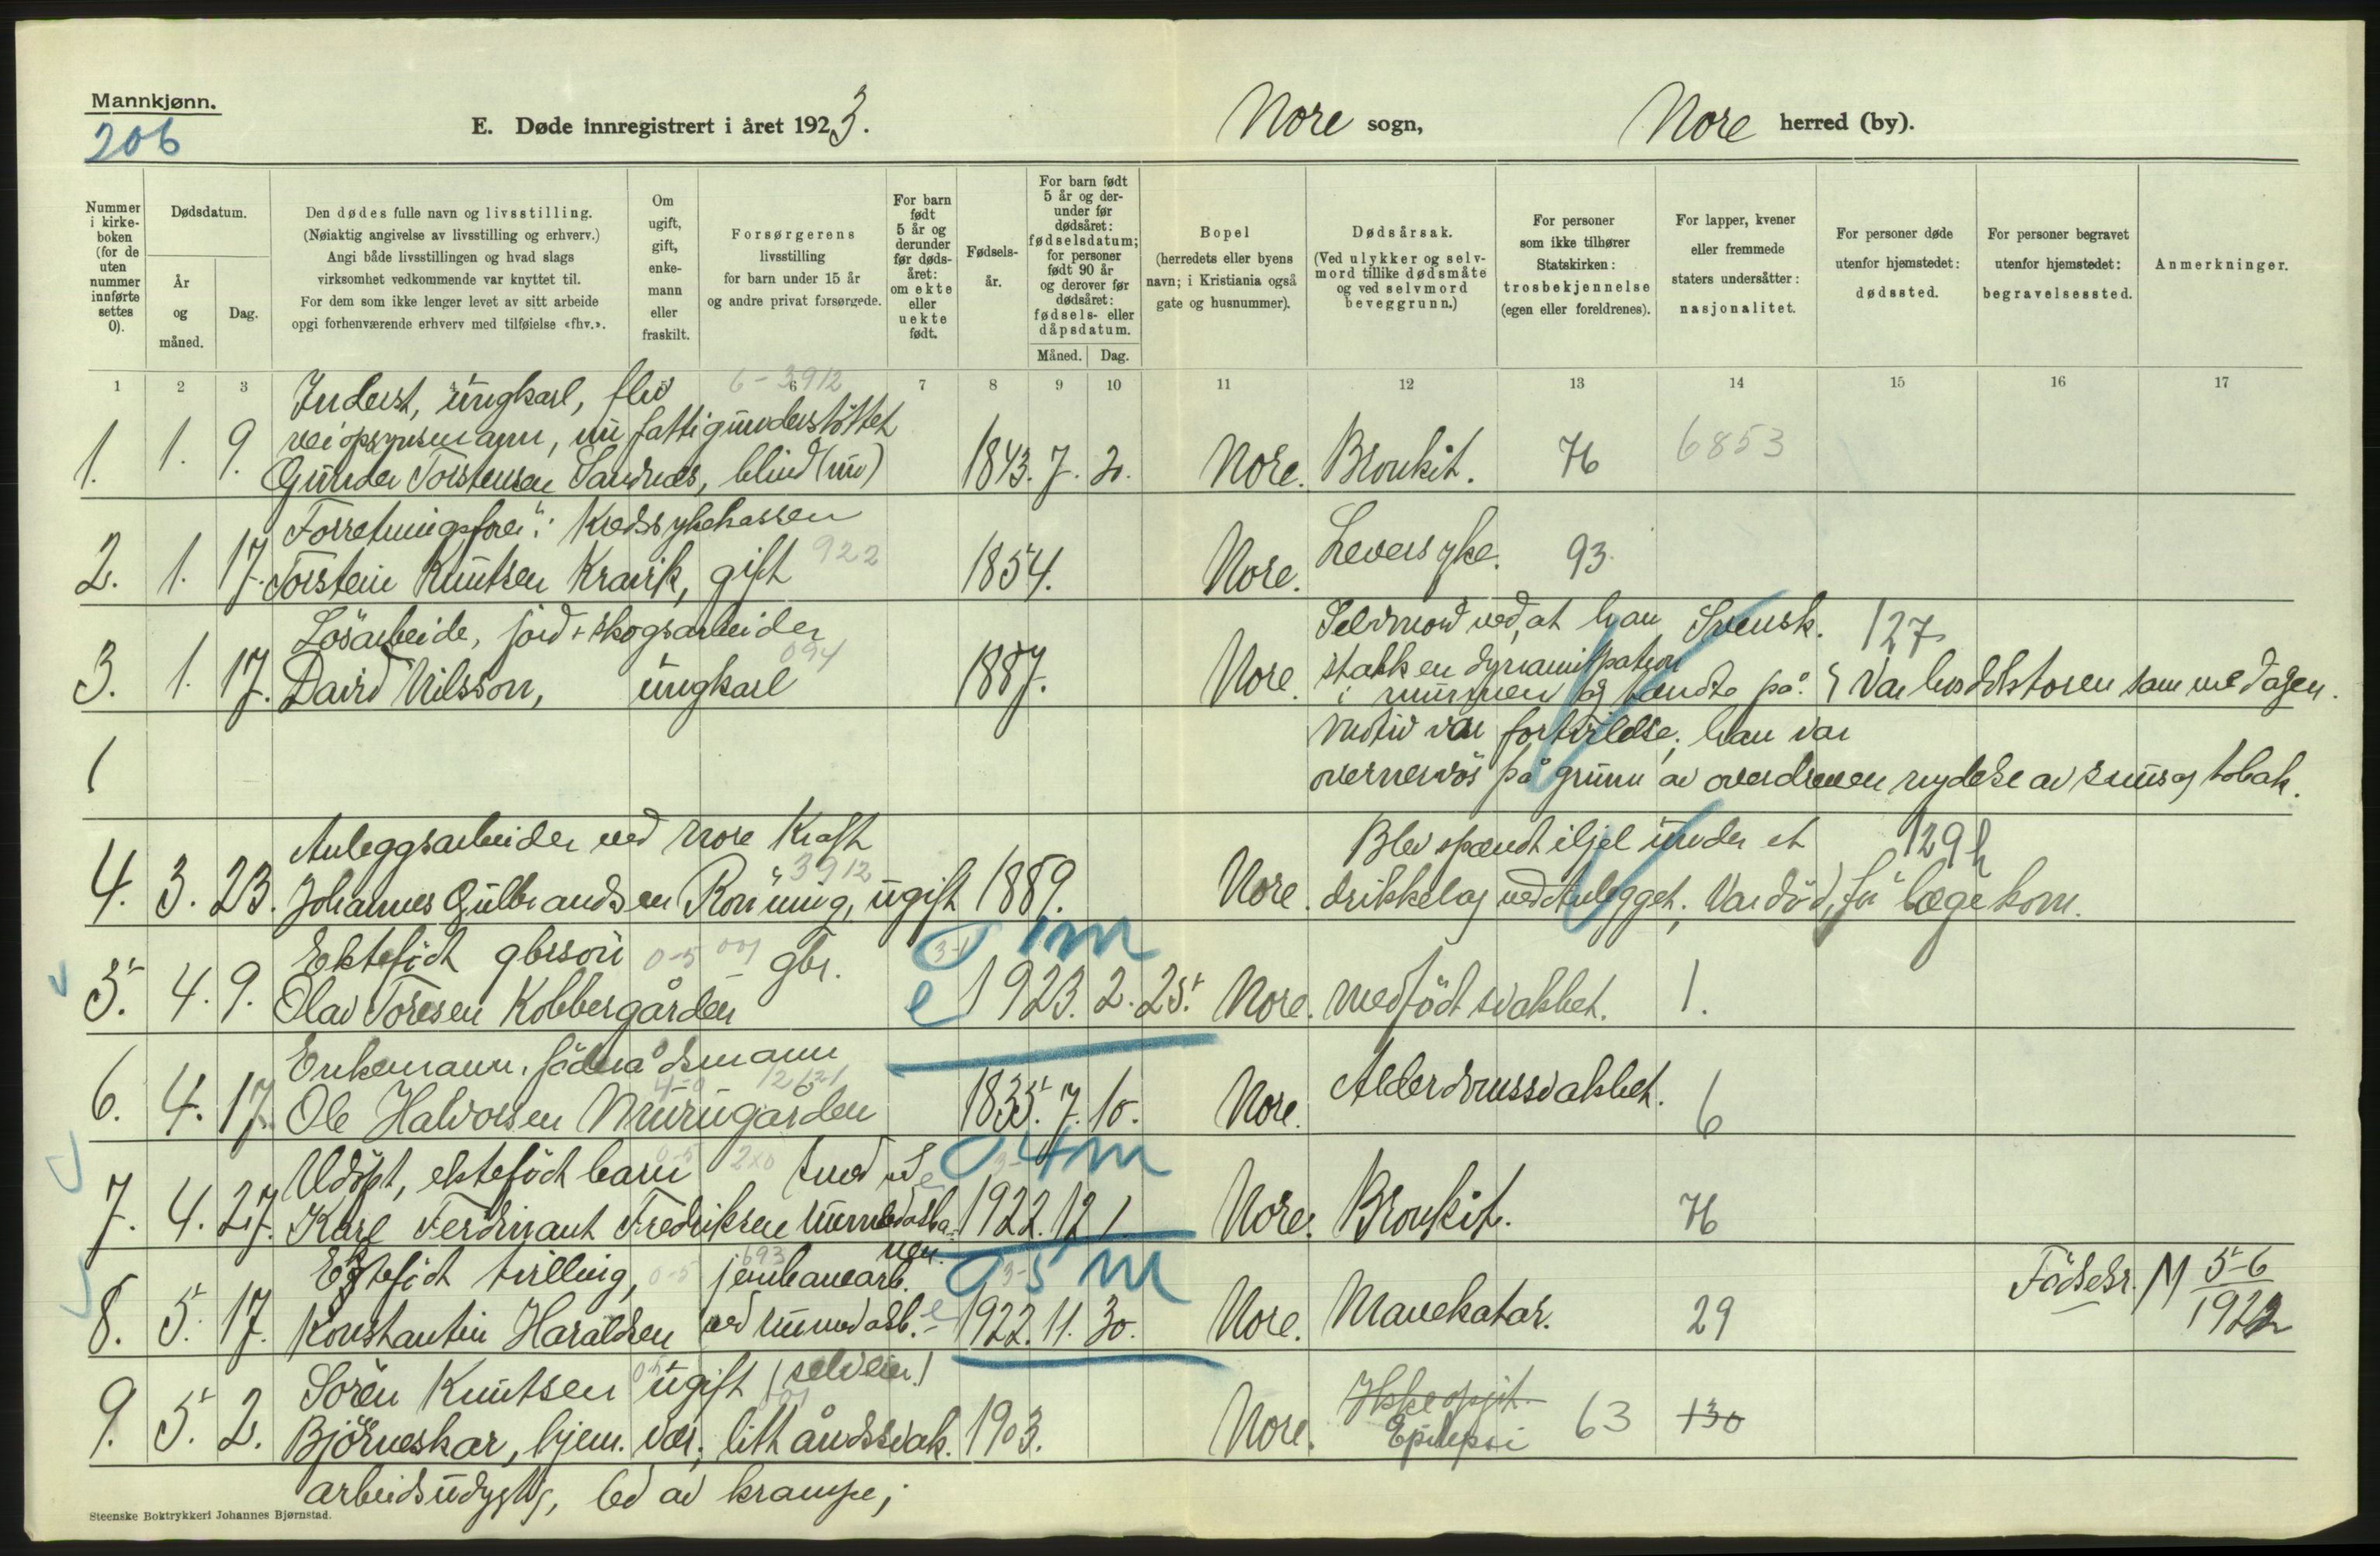 Mannkjønn.
206
E. Døde innregistrert i året 1923.
Nore sogn,
Nore herred (by).
Nummer i kirke-boken (for de uten nummer innførte settes 0).
Dødsdatum.
År og måned.
Dag.
Den dødes fulle navn og livsstilling.
(Nøiaktig angivelse av livsstilling og erhverv.)
Angi både livsstillingen og hvad slags
virksomhet vedkommende var knyttet til.
For dem som ikke lenger levet av sitt arbeide
opgi forhenværende erhverv med tilføielse «fhv.».
Om ugift, gift, enke-mann eller fraskilt.
Forsørgerens
livsstilling
for barn under 15 år
og andre privat forsørgede.
For barn født 5 år og derunder før døds-året: om ekte eller uekte født.
Fødsels-år.
For barn født 5 år og der-under før dødsåret: fødselsdatum; for personer født 90 år og derover før dødsåret: fødsels- eller dåpsdatum.
Måned. Dag.
Bopel
(herredets eller byens
navn; i Kristiania også
gate og husnummer).
Dødsårsak.
(Ved ulykker og selv-
mord tillike dødsmåte
og ved selvmord
beveggrunn.)
For personer
som ikke tilhører
Statskirken:
trosbekjennelse
(egen eller foreldrenes).
For lapper, kvener
eller fremmede
staters undersåtter:
nasjonalitet.
For personer døde
utenfor hjemstedet:
dødssted.
For personer begravet
utenfor hjemstedet:
begravelsessted.
Anmerkninger.
1 2 3 6 7 8 9 10 11 12 13 14 15 16 17
Inderst, ungkarl, flv 6-3912
veiopsynsmann, nu fattigunderstöttet
1. 1. 9. Gunder Torstensen Sandnes, blind (nu) 1843. 7. 20. Nore. Bronkit. 76 6853
Forretningsför: Kredssykekassen
2. 1. 17. Torstein Knutsen Kravik, gift 922 1854. Nore. Leversyke. 93.
Lösarbeide, jord + skogsarbeider
3. 1. 17. David Nilsson, ungkarl 094 1887. Nore.
Selvmord ved, at han Svensk. 127
stakk en dynamitpatron
i munnen og tændte på. Var hos doktoren samme dagen.
Motiv var fortvilelse; han var
overnervös på grunn av overdreven nydelse av snus og tobak.
1
Anleggsarbeider ved Nore Kraft
4. 3. 23. Johannes Gulbrandsen Rönning, ugift 3912 1889. Nore.
Blev spændt ihjel under et 129h
drikkelag ved Anlegget; Var död, för læge kom.
Ektefödt gbrsön 0-5 001 gbr. 3-1 1m
5. 4. 9. Olav Toresen Kobbergården e 1923. 2. 25. Nore. Medfödt svakhet. 1.
Enkemann, föderådsmann
6. 4. 17. Ole Halvorsen Mürügården 1835. 7. 10. Nore. Alderdomssvakhet. 6
Udöpt, ektefödt barn 4m
7. 4. 27. Karl Ferdinant Fredriksen Numedasba- 1922. 12 1. Nore. Bronkit. 76
nen.
Ektefödt tvilling, 0-5 693 jernbanearb. 5m
8. 5. 17. Konstantin Haraldsen ved Numedasb. e 1922. 11. 30. Nore. Mavekatar. 29 Födselsr. M 5-6 1922
Sören Knutsen ugift (selveier)
9. 5. 2. Björneskar, hjem. vær, litt åndssvak. 1903. Nore. Ikke opgit. Epilepsi 63 130
arbeidsudyktig, led av krampe;
Steenske Boktrykkeri Johannes Bjørnstad.